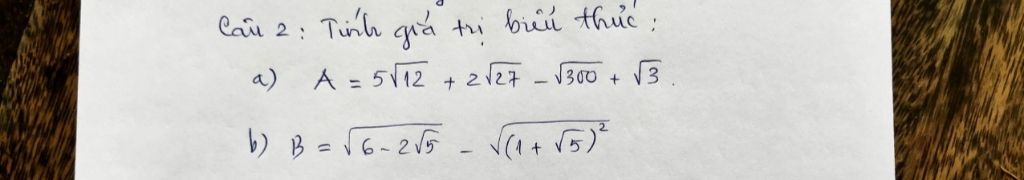 Câu 2 : Tính giá trị biểu thức :
a) A = 5√12 + 2√27 - √300 + √3 .
b) B = √(6 - 2√5) - √((1 + √5)²)